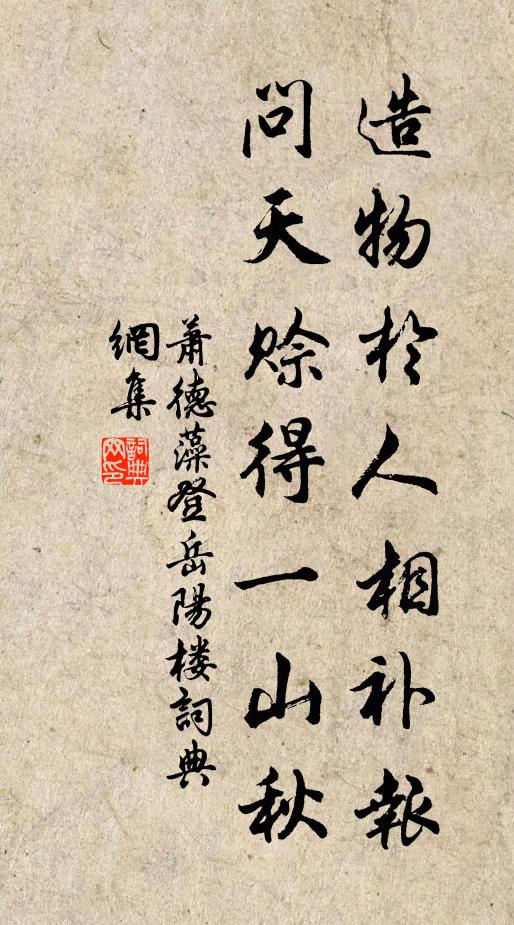 造物於人相补報
問天賒得一山秋
蕭德藻登岳陽楼詞典
網集
詞典網印